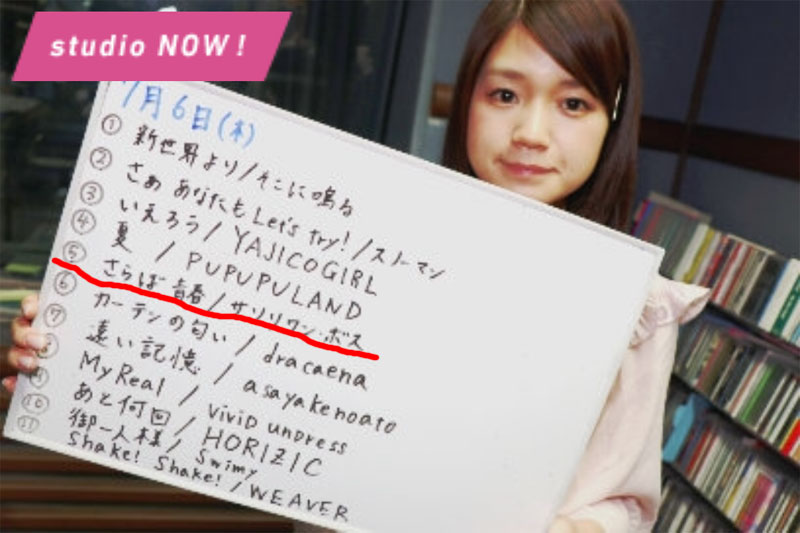 studio NOW!
7月6日(木)
① 新世界より/そこに鳴る
② さぁ あなたも Let's Try!/スノーマン
③ いえろう/YAJICOGIRL
④ 夏/PUPUPULAND
⑤ さらば青春/サソリワン・ボス
⑥ カーテンの匂い/dracaena
⑦ 遠い記憶/asayakenoato
⑧ My Real/ViViD UNDRESS
⑨ あと何回/HORIZIC
⑩ 御一人様/Swimy
⑪ Shake! Shake!/WEAVER